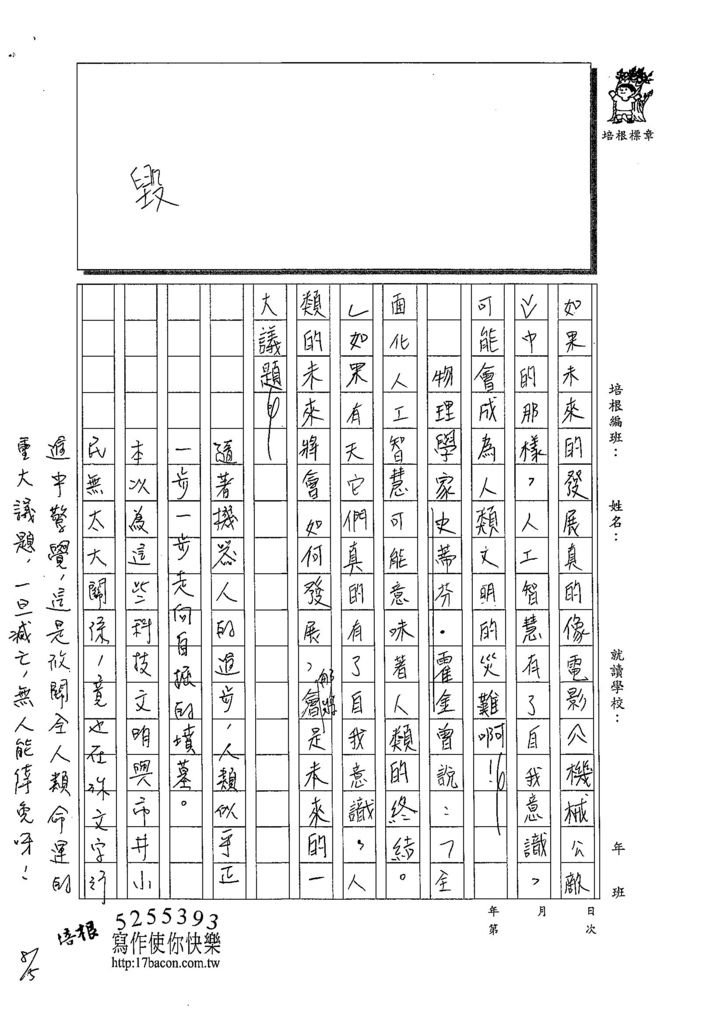 毀
培根標章
培根編班：
姓名：
就讀學校：
年 班
如果未來的發展真的像電影《機械公敵
》中的那樣，人工智慧有了自我意識，
可能會成為人類文明的災難啊！
物理學家史蒂芬．霍金曾說：「全
面化人工智慧可能意味著人類的終結。
」如果有天它們真的有了自我意識，人
類的未來將會如何發展，都將會是未來的一
大議題。
隨著機器人的進步，人類似乎正
一步一步走向自掘的墳墓。
本以為這些科技文明與市井小
民無太大關係，竟也在妳文字行
進中驚覺，這是攸關全人類命運的
重大議題，一旦滅亡，無人能倖免呀！
日 月 年
次 第
培根
5255393
寫作使你快樂
http:17bacon.com.tw
8/15